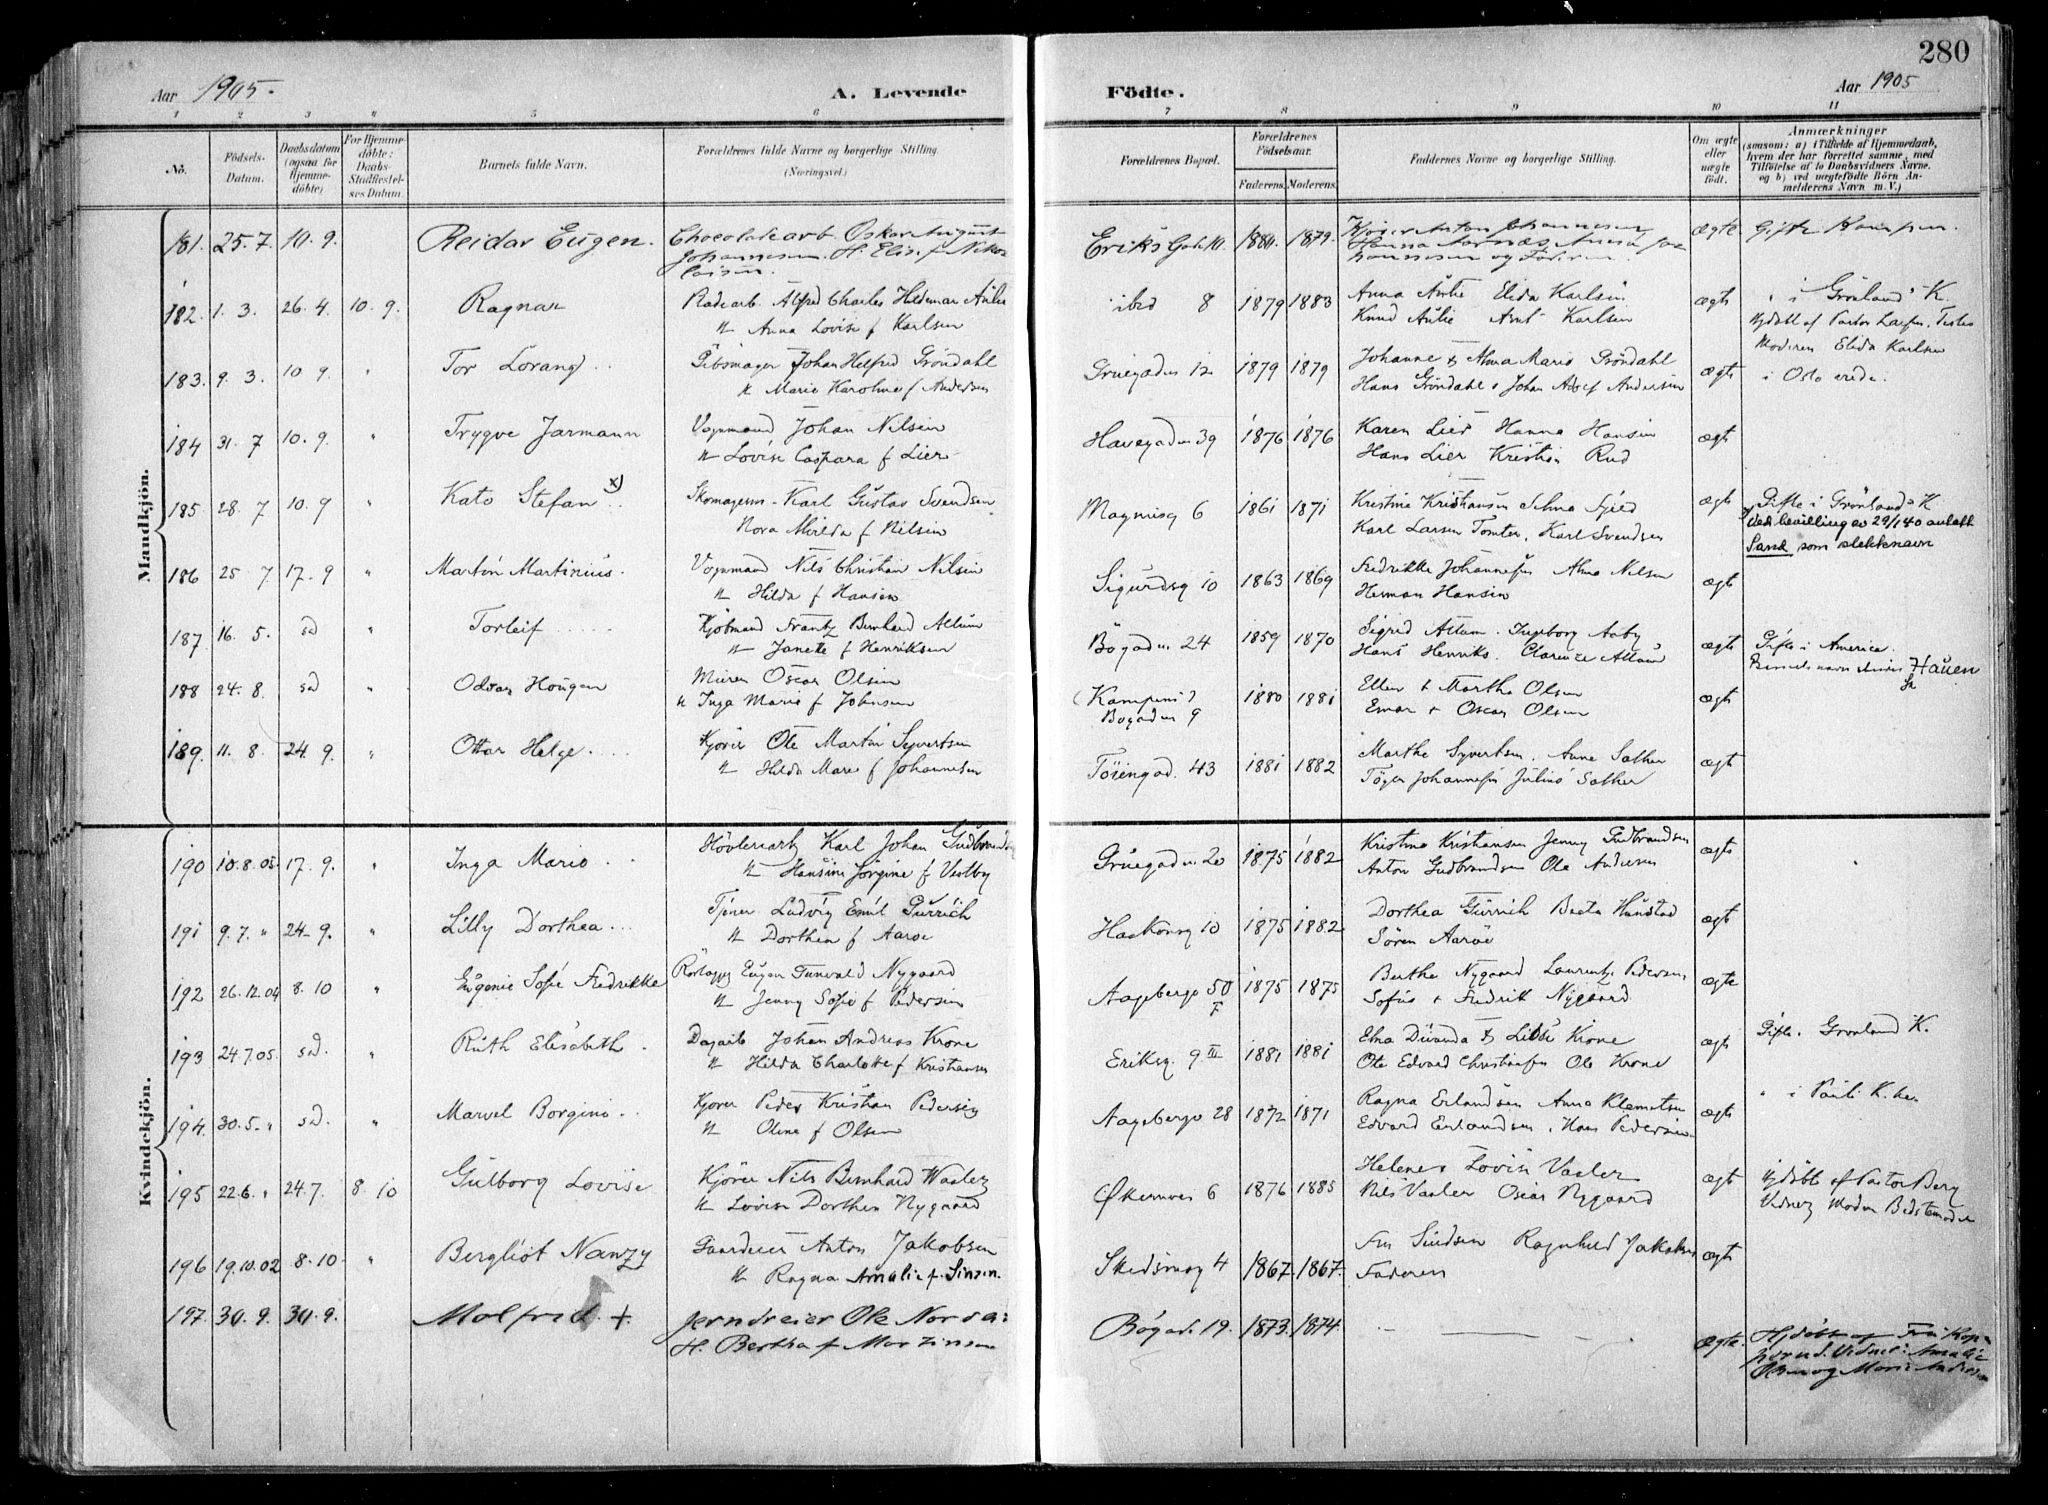 280
Aar 1905.
A. Levende
Födte.
Aar 1905
1 2 3 4 5 6 7 8 9 10 11
No.
Födsels-Datum.
Daabsdatum (ogsaa for Hjemmedöbte)
For Hjemmedöbte: Daabs-Stadfæstelses Datum.
Barnets fulde Navn.
Forældrenes fulde Navne og borgerlige Stilling. (Næringsvei.)
Forældrenes Bopæl.
Forældrenes Födselsaar.
Faderens. Moderens.
Faddernes Navne og borgerlige Stilling.
Om ægte eller uægte födt.
Anmærkninger
(saasom: a) i Tilfælde af Hjemmedaab, hvem der har forrettet samme, med Tilföielse af to Daabsvidners Navne, og b) ved uægtefödte Börn Anmelderens Navn m. V.)
Mandkjön.
181. 25.7. 10.9. Reidar Eugen. Chocoladearb. Oskar August Eriks Gade 10. 1880. 1879. Kjører Anton Johannesen ægte
Johannesen. H. Elis. f. Nikolaisen. Hanna Aarnæs. Anna Johannesen og Faderen.
182. 1. 3. 26.4 10.9. Ragnar Alfred Charles Hildemar Aulie ibid 8 1879 1883 Anna Aulie Elida Karlsen ægte " i Grønland K.
H Anna Lovise f Karlsen Knud Aulie Arnt Karlsen Hjdøbt af Pastor
Moderen Elida Karlsen
183. 9. 3. 10 9. " Tor Lorang Gibsmager Johan Helfred Gröndahl Gruegaden 12 1879 1879 Johanne & Alma Marie Gröndahl ægte i Oslo
H Marie Karoline f Andersen Hans Gröndahl Johan Adolf Andersen
184 31. 7 10.9. " Trygve Jarmann Vognmand Johan Nilsen Havegaden 39 1876 1876 Karen Lier Hanna Hansen ægte
H Lovise Caspara f Lier Hans Lier Kristian Rud
185 28. 7 10.9 " Kato Stefan x) Skomagersv. Karl Gustav Svendsen Magnusg 6 1861 1871 Kristine Kristiansen Selma ægte Gifte i Grønlands K
Nora Milda f Nilsen Karl Larsen Tomter, Karl Svendsen x) Ved bevilling av 29/1 40 antatt
Sand som slektsnavn
186 25 7. 17.9 " Martin Martinius. Vognmand Nils Christian Nilsen Sigurdsg 10 1863 1869 Fredrikke Johannesen Alma Nilsen ægte
H Hilda f Hansen Herman Hansen
187 16. 5. sd " Torleif Kjøbmand Frantz Bernhard Altum Bögaden 24 1859 1870 Sigrid Altum. Ingeborg Aaby ægte Gifte i America.
H Janette f Henriksen Hans Henriks. Clarence Altum
188 24. 8. sd " Odvar Hougen Murer Oscar Olsen (Kampens) Bögaden 9 1880 1881 Ellen & Martha Olsen ægte Hauen
H Inga Marie f Johnsen Einar & Oscar Olsen
189. 11. 8. 24.9. " Ottar Helge. Kjører Ole Martin Syvertsen Töiengad. 43 1881 1882 Marthe Syvertsen. Anne Sather ægte
H Hilda Marie f Johannesen Johannesen Julius Sather
Kvindekjön.
190 10.8.05 17.9. " Inga Marie Høvleriarb. Karl Johan Gudbrandsen Gruegaden 20 1875 1882 Kristine Kristiansen Jenny Gudbrandsen ægte
H Hansine Jörgine f Vestby Anton Gudbrandsen Ole Andersen
191 9.7. " 24.9. " Lilly Dorthea Tjener Ludvig Emil Gurrich Haakonsg 10 1875 1882 Dorthea Gurrich Beata ægte
H Dorthea f Aaroe Sören Aaröe
192 26.12.04 8.10 " Eugenie Sofie Fredrikke Eugen Tunvald Nygaard Aagebergv 50 F 1875 1875 Berthe Nygaard Laurentze Pedersen ægte
H Jenny Sofie f Pedersen Sofus & Fredrik Nygaard
193 24.7.05. sd. " Ruth Elisabeth. Dagarb Johan Andreas Krone Eriksg. 9 III 1881 1881 Elna & Krone ægte Gifte. Grønland K.
H Hilda Charlotte f Kristiansen Ole Edvard Christiansen Ole Krone
194. 30.5. " sd. " Marvel Borgine Kjører Peder Kristian Pedersen Aagebergv 28 1872 1871 Ragna Erlandsen Anna Klemetsen ægte " i Pauli K.
H Oline f Olsen Edvard Erlandsen, Hans Pedersen
195 22.6. " 24.7. 8. 10 Gulborg Lovise Kjører Nils Bernhard Waaler Økernvei 6 1876 1885 Helene & Lovise Vaaler ægte Hjdøbt af Pastor Berg
H Lovise Dorthea Nygaard Nils Vaaler Oscar Nygaard Moder Bedstemoder
196 19.10.02 8.10 " Bergliot Nanzy Anton Jakobsen Skedsmog 4 1867. 1867. Fru Ragnhild Jakobsen ægte
H Ragna Amalie f. Sinsen. Faderen
197. 30.9. 30.9. Molfrid. + Jerndreier Ole Norda: Bögad. 19. 1873. 1874. ægte. Hjdøbt af Frk
H. Bertha f Martinsen Vidner: Amalie
og Marie Andersen